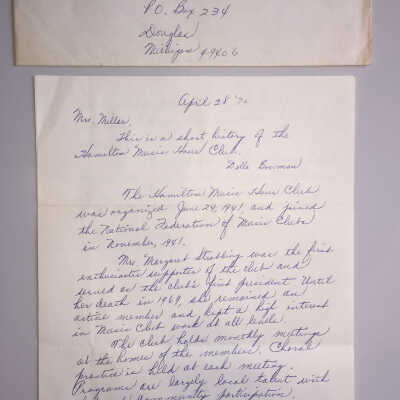 P.O. Box 234
Douglas
Michigan 49406
April 28 '70
Mrs. Miller,
This is a short history of the
Hamilton Music Hour Club.
Della Bowman
The Hamilton Music Hour Club
was organized June 24, 1941 and joined
the National Federation of Music Clubs
in November, 1941.
Mrs. Margaret Strabbing was the first
enthusiastic supporter of the club and
served as the club's first president. Until
her death in 1969, she remained an
active member and kept a high interest
in Music Club work at all levels.
The club holds monthly meetings
at the homes of the members. Choral
practice is held at each meeting.
Programs are largely local talent with
community participation.